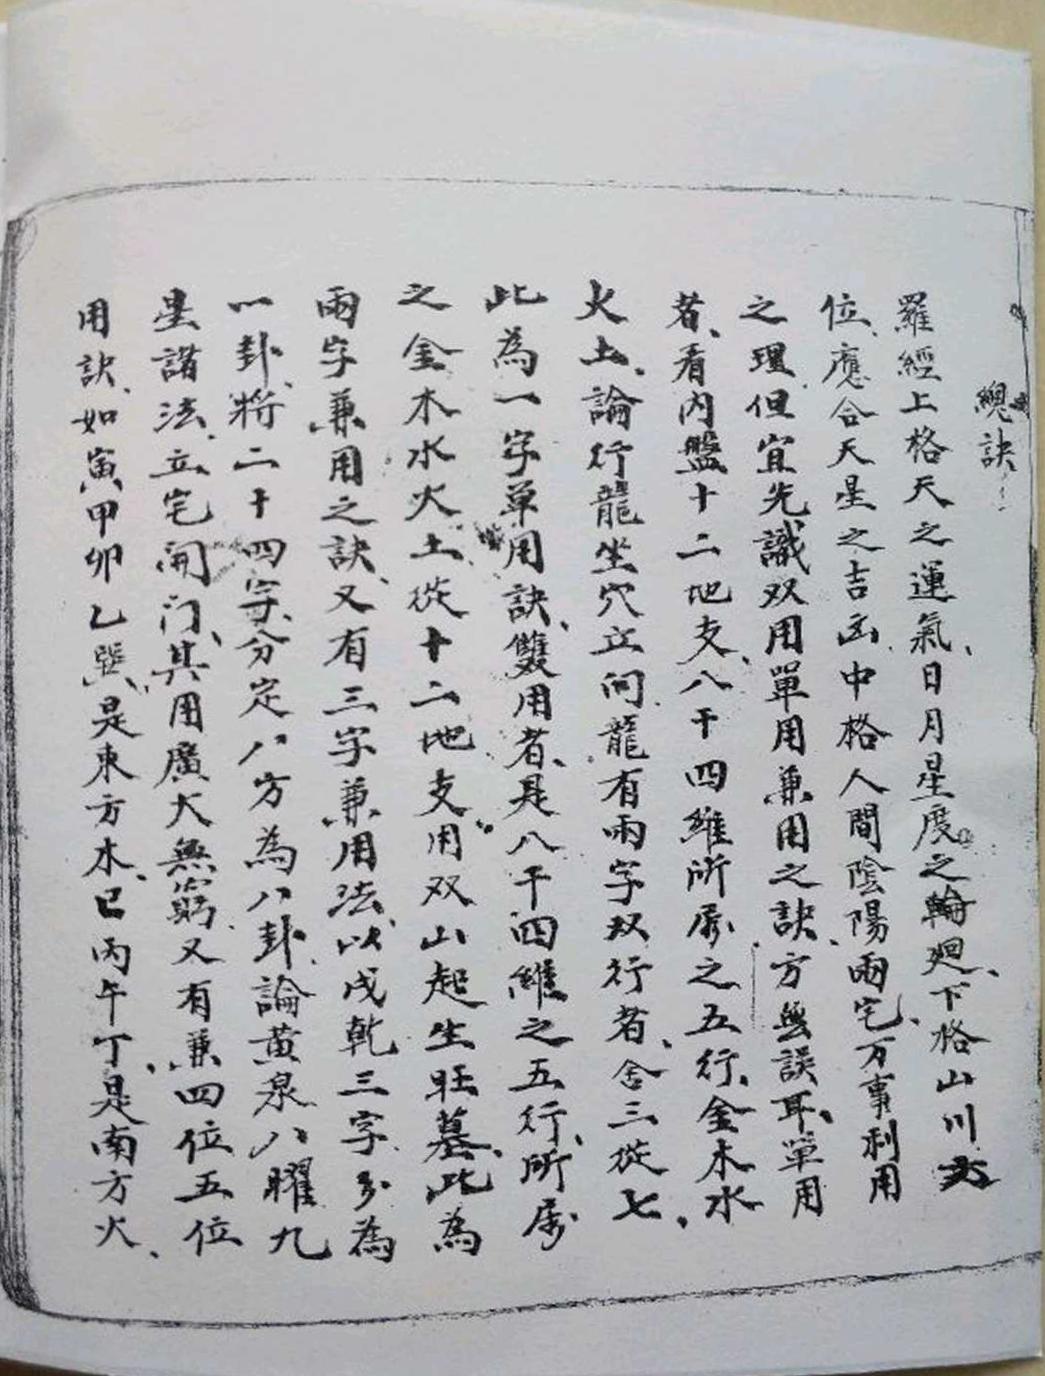 總訣
羅經上格天之運氣、日月星度之輪廻、下格山川方
位、應合天星之吉凶中格人間陰陽兩宅、万事利用
之理但宜先識双用單用兼用之訣、方無誤耳、單用
者、看内盤十二地支、八干四維所属之五行、金木水
火土、論行龍坐穴立向龍有兩字双行者、舍三從七、
此為一字單用訣、雙用者、是八干四維之五行、所属
之金木水火土、從十二地支、用双山起生旺墓、此為
兩字兼用之訣、又有三字兼用法、以戌乾三字、多為
一卦、將二十四字、分定八方為八卦、論黄泉八曜九
星諸法、立宅開门、其用廣大無窮、又有兼四位五位
用訣、如寅甲卯乙巽、是東方木、巳丙午丁、是南方火、